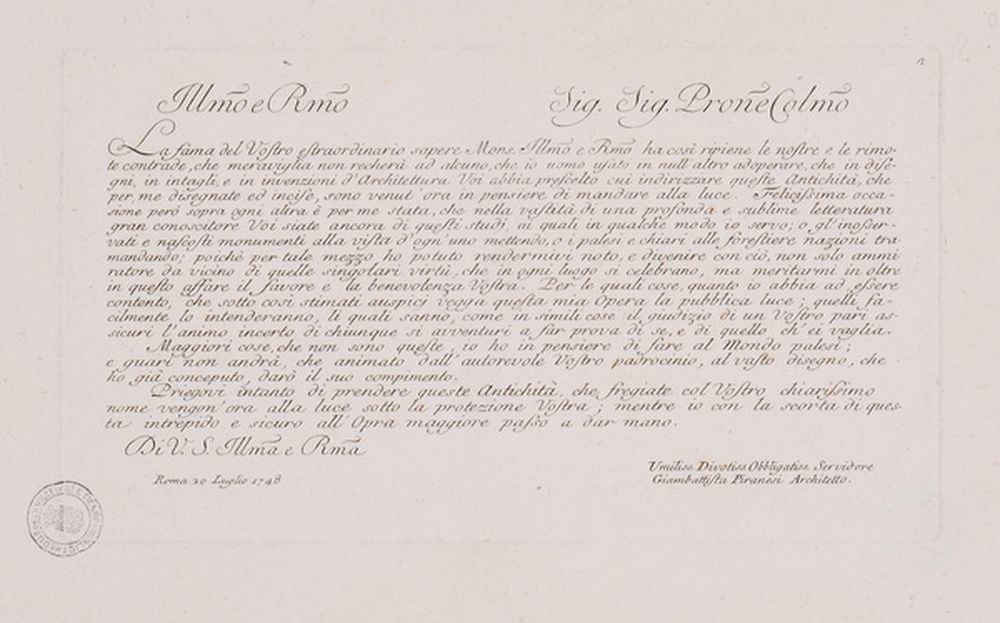 2
Illm̃o e Rm̃o Sig. Sig. Proñe Colm̃o
La fama del Voſtro eſtraordinario sapere Mons. Illm̃o e Rm̃o ha così ripiene le noſtre e le rimo-
te contrade, che meraviglia non recherà ad alcuno, che io uomo uſato in null'altro adoperare, che in diſe-
gni, in intagli, e in invenzioni d'Architettura Voi abbia preſcelto cui indirizzare queſte Antichità, che
per me disegnate ed inciſe, sono venut'ora in pensiere di mandare alla luce. Feliciſſima occa-
sione però sopra ogni altra è per me stata, che nella vaſtità di una profonda e sublime letteratura
gran conoscitore Voi siate ancora di queſti studi, ai quali in qualche modo io servo; o gl'inoſſer-
vati e naſcoſti monumenti alla viſta d'ogn'uno mettendo, o i palesi e chiari alle foreſtiere nazioni tra
mandando; poichè per tale mezzo ho potuto rendermivi noto, e divenire con ciò, non solo ammi
ratore da vicino di quelle singolari virtù, che in ogni luogo si celebrano, ma meritarmi in oltre
in queſto affare il favore e la benevolenza Voſtra. Per le quali cose, quanto io abbia ad eſſere
contento, che sotto così stimati auspicj vegga queſta mia Opera la pubblica luce; quelli fa-
cilmente lo intenderanno, li quali sanno, come in simili cose il giudizio di un Voſtro pari as-
sicuri l'animo incerto di chiunque si avventuri a far prova di se, e di quello ch'ei vaglia.
Maggiori cose, che non sono queſte, io ho in pensiere di fare al Mondo palesi;
e guari non andrà, che animato dall'autorevole Voſtro padrocinio, al vaſto disegno, che
ho già conceputo, darò il suo compimento.
Priegovi intanto di prendere queste Antichità, che fregiate col Voſtro chiariſſimo
nome vengon'ora alla luce sotto la protezione Voſtra; mentre io con la scorta di ques-
ta intrepido e sicuro all'Opra maggiore paſſo a dar mano.
Di V. S. Illm̃a e Rm̃a
Roma 20 Luglio 1748
Umiliss. Divotiss. Obbligatiss. Servidore
Giambattiſta Piranesi Architetto.